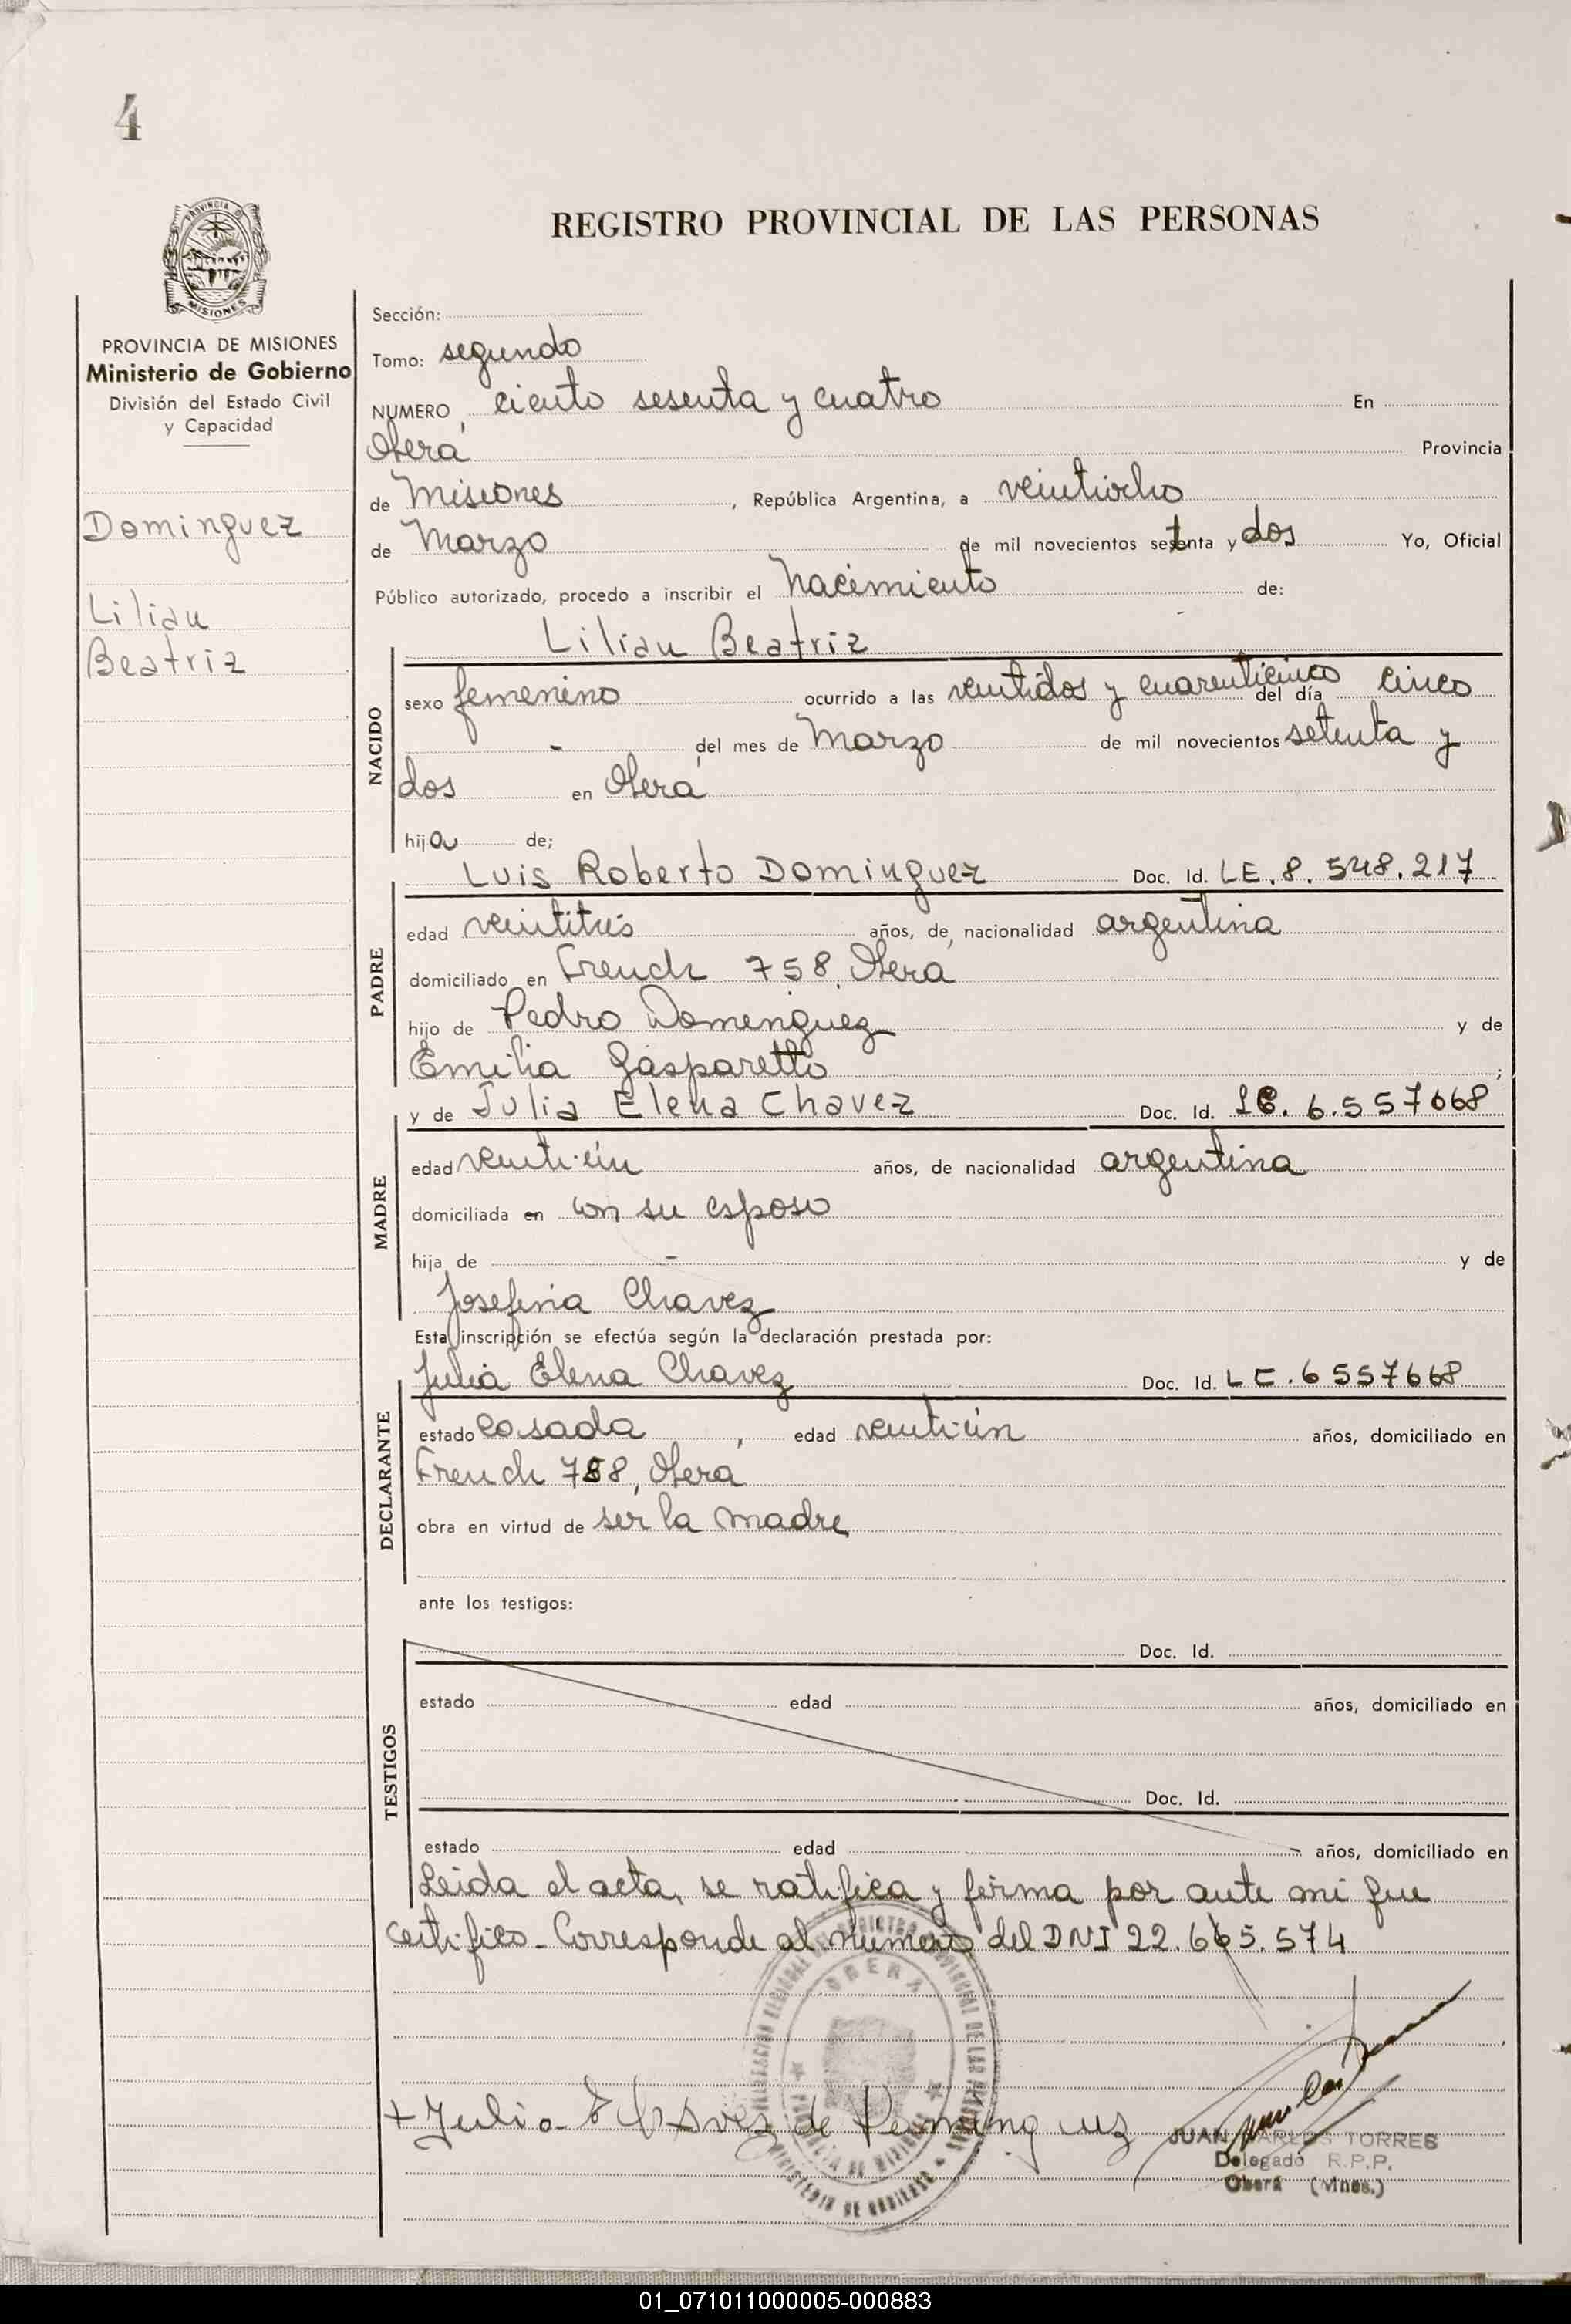 4
PROVINCIA DE
MISIONES
REGISTRO PROVINCIAL DE LAS PERSONAS
PROVINCIA DE MISIONES
Ministerio de Gobierno
División del Estado Civil
y Capacidad
Dominguez
Lilian
Beatriz
Sección:
Tomo: segundo
NUMERO ciento sesenta y cuatro En
Oberá Provincia
de Misiones, República Argentina, a veintiocho
de Marzo de mil novecientos setenta y dos Yo, Oficial
Público autorizado, procedo a inscribir el nacimiento de:
Lilian Beatriz
NACIDO
sexo femenino ocurrido a las veintidos y cuarenticinco del día cinco
- del mes de Marzo de mil novecientos setenta y
dos en Oberá
hija de;
Luis Roberto Dominguez Doc. Id. LE. 8. 548. 217
PADRE
edad veintitrés años, de nacionalidad argentina
domiciliado en French 758, Oberá
hijo de Pedro Domenguez y de
Emilia Gasparetto ;
y de Julia Elena Chavez Doc. Id. LC. 6.557668
MADRE
edad veinti-ún años, de nacionalidad argentina
domiciliada en con su esposo
hija de - y de
Josefina Chavez
Esta inscripción se efectúa según la declaración prestada por:
Julia Elena Chavez Doc. Id. LC. 6557668
DECLARANTE
estado casada, edad veinti-ún años, domiciliado en
French 758, Oberá
obra en virtud de ser la madre
ante los testigos:
TESTIGOS
Doc. Id.
estado edad años, domiciliado en
Doc. Id.
estado edad años, domiciliado en
Leida el acta, se ratifica y firma por ante mi que
certifico - Corresponde al número del DNI 22.665.574
OBERA
PROVINCIA DE MISIONES
MINISTERIO DE GOBIERNO
+ Julia E Chavez de Dominguez
JUAN CARLOS TORRES
Delegado R.P.P.
Oberá (Mnes.)
01_071011000005-000883